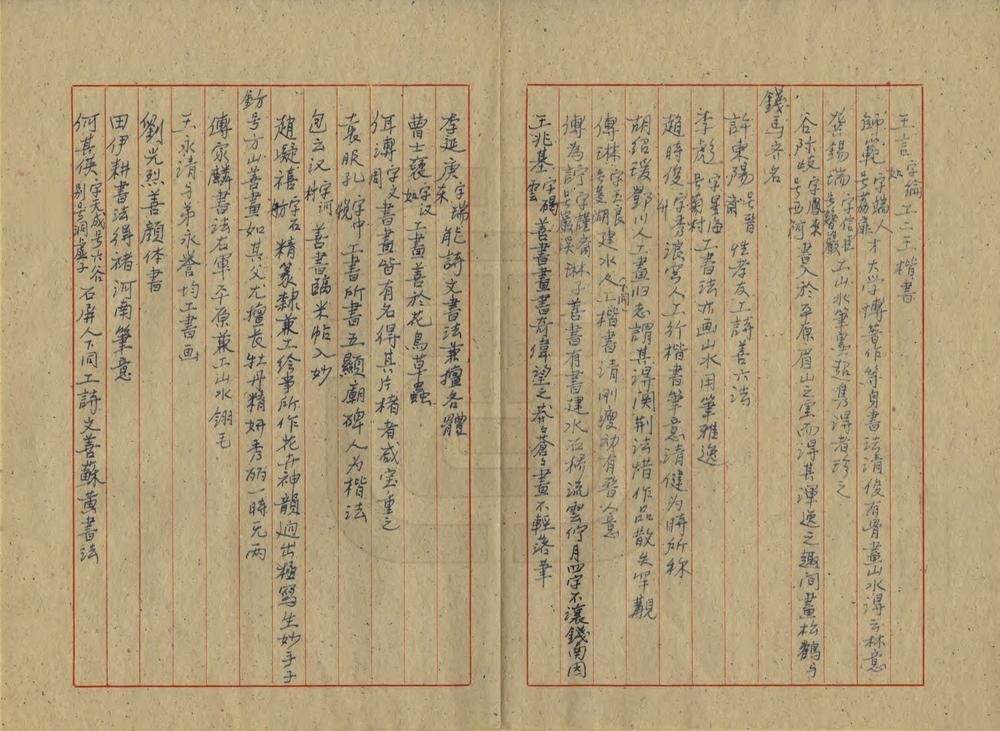 王言字綸工二王楷書
師範字端人号荔扉才大学博著作等身書法清俊有骨畫山水淂云林意
龚錫瑞字信臣工山水筆墨超雋淂者珍之
谷际岐字鳳來号西河書入於平原眉山之室而淂其渾逸之趣间畫松鶴与
錢馬齐名
許東陽 性孝友工詩善六法
李彪字墨海号菊村工書法亦画山水用筆雅逸
趙時俊字升秀浪穹人工行楷書筆意清健为時所称
胡绍瑗鄧川人工畫旧志謂其淂関荆法惜作品散失罕觀
傅琳字玉良建水人工楷書清刚瘦劲有晋人意
傅為詝字謹齋号巖溪琳子善書有書建水石橋流雲佇月四字不讓錢南园
王兆基字碣雲善書畫書奇偉望之莽々蒼々畫不輕落筆
李延庚字端來能詩文書法兼擅各體
曹士䙚字汉如工畫善於花鳥草蟲
何溥字文周書畫皆有名得其片楮者咸宝重之
袁服孔字中悦工書所書五顯廟碑人为楷法
包云汉字河村善書臨米帖入妙
趙凝禧字石舫精篆隸兼工绘事所作花卉神韻迥出極寫生妙手子
鈖号方山善畫如其父尤擅長牡丹精妍秀丽一時无两
傅家麟書法右軍平原兼工山水翎毛
王永清与弟永誉均工書画
劉光烈善颜体書
田伊耕書法得褚河南筆意
何其偀字天成号六谷别号洞虛子石屏人下同工詩文善蘇黄書法